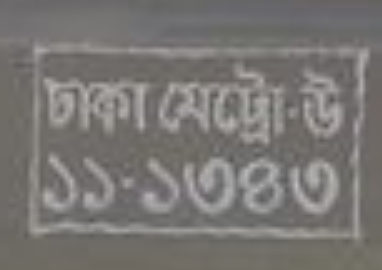 ঢাকা মেট্রো-উ
১১-১৩৪৩